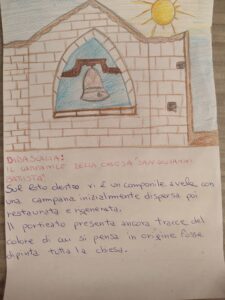 DIDASCALIA:
IL CAMPANILE DELLA CHIESA "SAN GIOVANNI
BATTISTA"
Sul lato destro vi è un campanile a vela con
una campana inizialmente dispersa poi
restaurata e rigenerata.
Il porticato presenta ancora tracce del
colore di cui si pensa in origine fosse
dipinta tutta la chiesa.